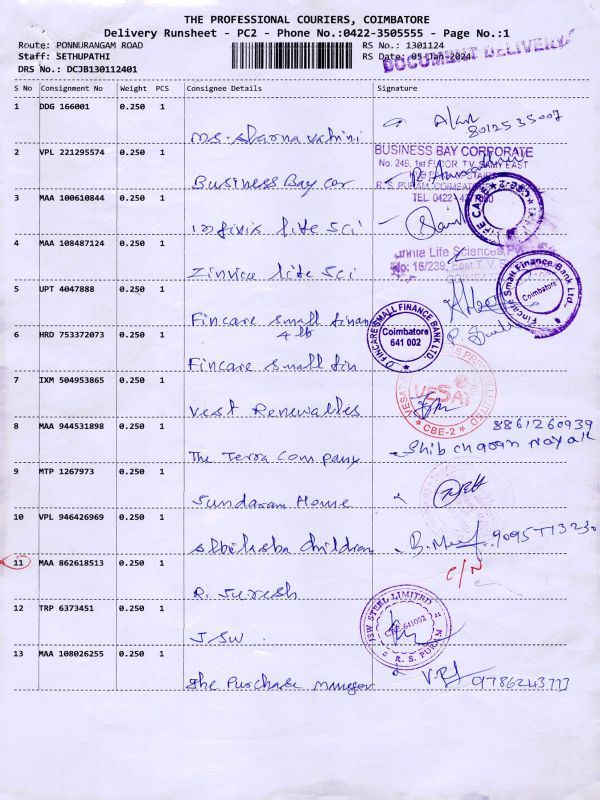 THE PROFESSIONAL COURIERS, COIMBATORE
Delivery Runsheet - PC2 - Phone No.:0422-3505555 - Page No.:1
Route: PONNURANGAM ROAD
RS No.: 1301124
Staff: SETHUPATHI
RS Date: 05-Jan-2024
DOCUMENT DELIVERY
DRS No.: DCJB130112401
S No Consignment No Weight PCS Consignee Details Signature
1 DDG 166001 0.250 1
8012535007
2 VPL 221295574 0.250 1 Business Bay cor
BUSINESS BAY CORPORATE
No. 249, 1st FLOOR, T.V. SAMY EAST
R. S. PURAM, COIMBATORE
TEL. 0422
3 MAA 100610844 0.250 1 life Sci
LIFE CARE
4 MAA 108487124 0.250 1 Zinvica life Sci
Life Sciences
No: 16/239, East T.V.
5 UPT 4047888 0.250 1 Fincare small finan
Fincare Small Finance Bank Ltd.
Coimbatore
6 HRD 753372073 0.250 1 Fincare small fin
FINCARE SMALL FINANCE BANK LTD.
Coimbatore
641 002
7 IXM 504953865 0.250 1 Vest Renewables
VESAT
CBE-2
8 MAA 944531898 0.250 1 The Terra Company
8861260939
9 MTP 1267973 0.250 1 Sundaram Home
10 VPL 946426969 0.250 1 Children
11 MAA 862618513 0.250 1 R. Suresh
C/N
12 TRP 6373451 0.250 1 JSW.
JSW STEEL LIMITED
CBE-641002
R. S. PURAM
13 MAA 108026255 0.250 1 The Purchase Manager